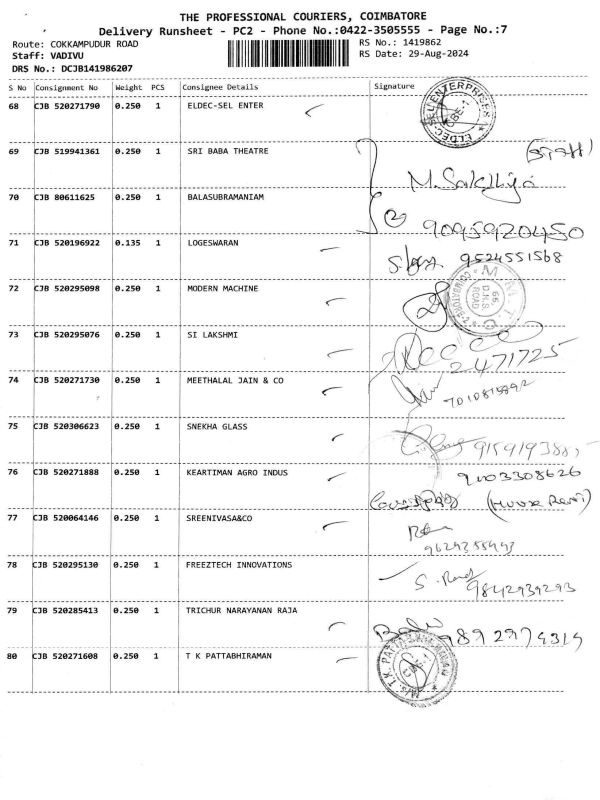 THE PROFESSIONAL COURIERS, COIMBATORE
Delivery Runsheet - PC2 - Phone No.:0422-3505555 - Page No.:7
Route: COKKAMPUDUR ROAD
RS No.: 1419862
Staff: VADIVU
RS Date: 29-Aug-2024
DRS No.: DCJB141986207
S No Consignment No Weight PCS Consignee Details Signature
68 CJB 520271790 0.250 1 ELDEC-SEL ENTER
ELDEC SEL ENTERPRISES
CBE-1
69 CJB 519941361 0.250 1 SRI BABA THEATRE
(Staff)
70 CJB 80611625 0.250 1 BALASUBRAMANIAM
9095920450
71 CJB 520196922 0.135 1 LOGESWARAN
9524551568
72 CJB 520295098 0.250 1 MODERN MACHINE
M M T C
COIMBATORE-2
66, D.N.S. ROAD
73 CJB 520295076 0.250 1 SI LAKSHMI
2471725
74 CJB 520271730 0.250 1 MEETHALAL JAIN & CO
75 CJB 520306623 0.250 1 SNEKHA GLASS
76 CJB 520271888 0.250 1 KEARTIMAN AGRO INDUS
77 CJB 520064146 0.250 1 SREENIVASA&CO
78 CJB 520295130 0.250 1 FREEZTECH INNOVATIONS
9842939293
79 CJB 520285413 0.250 1 TRICHUR NARAYANAN RAJA
80 CJB 520271608 0.250 1 T K PATTABHIRAMAN